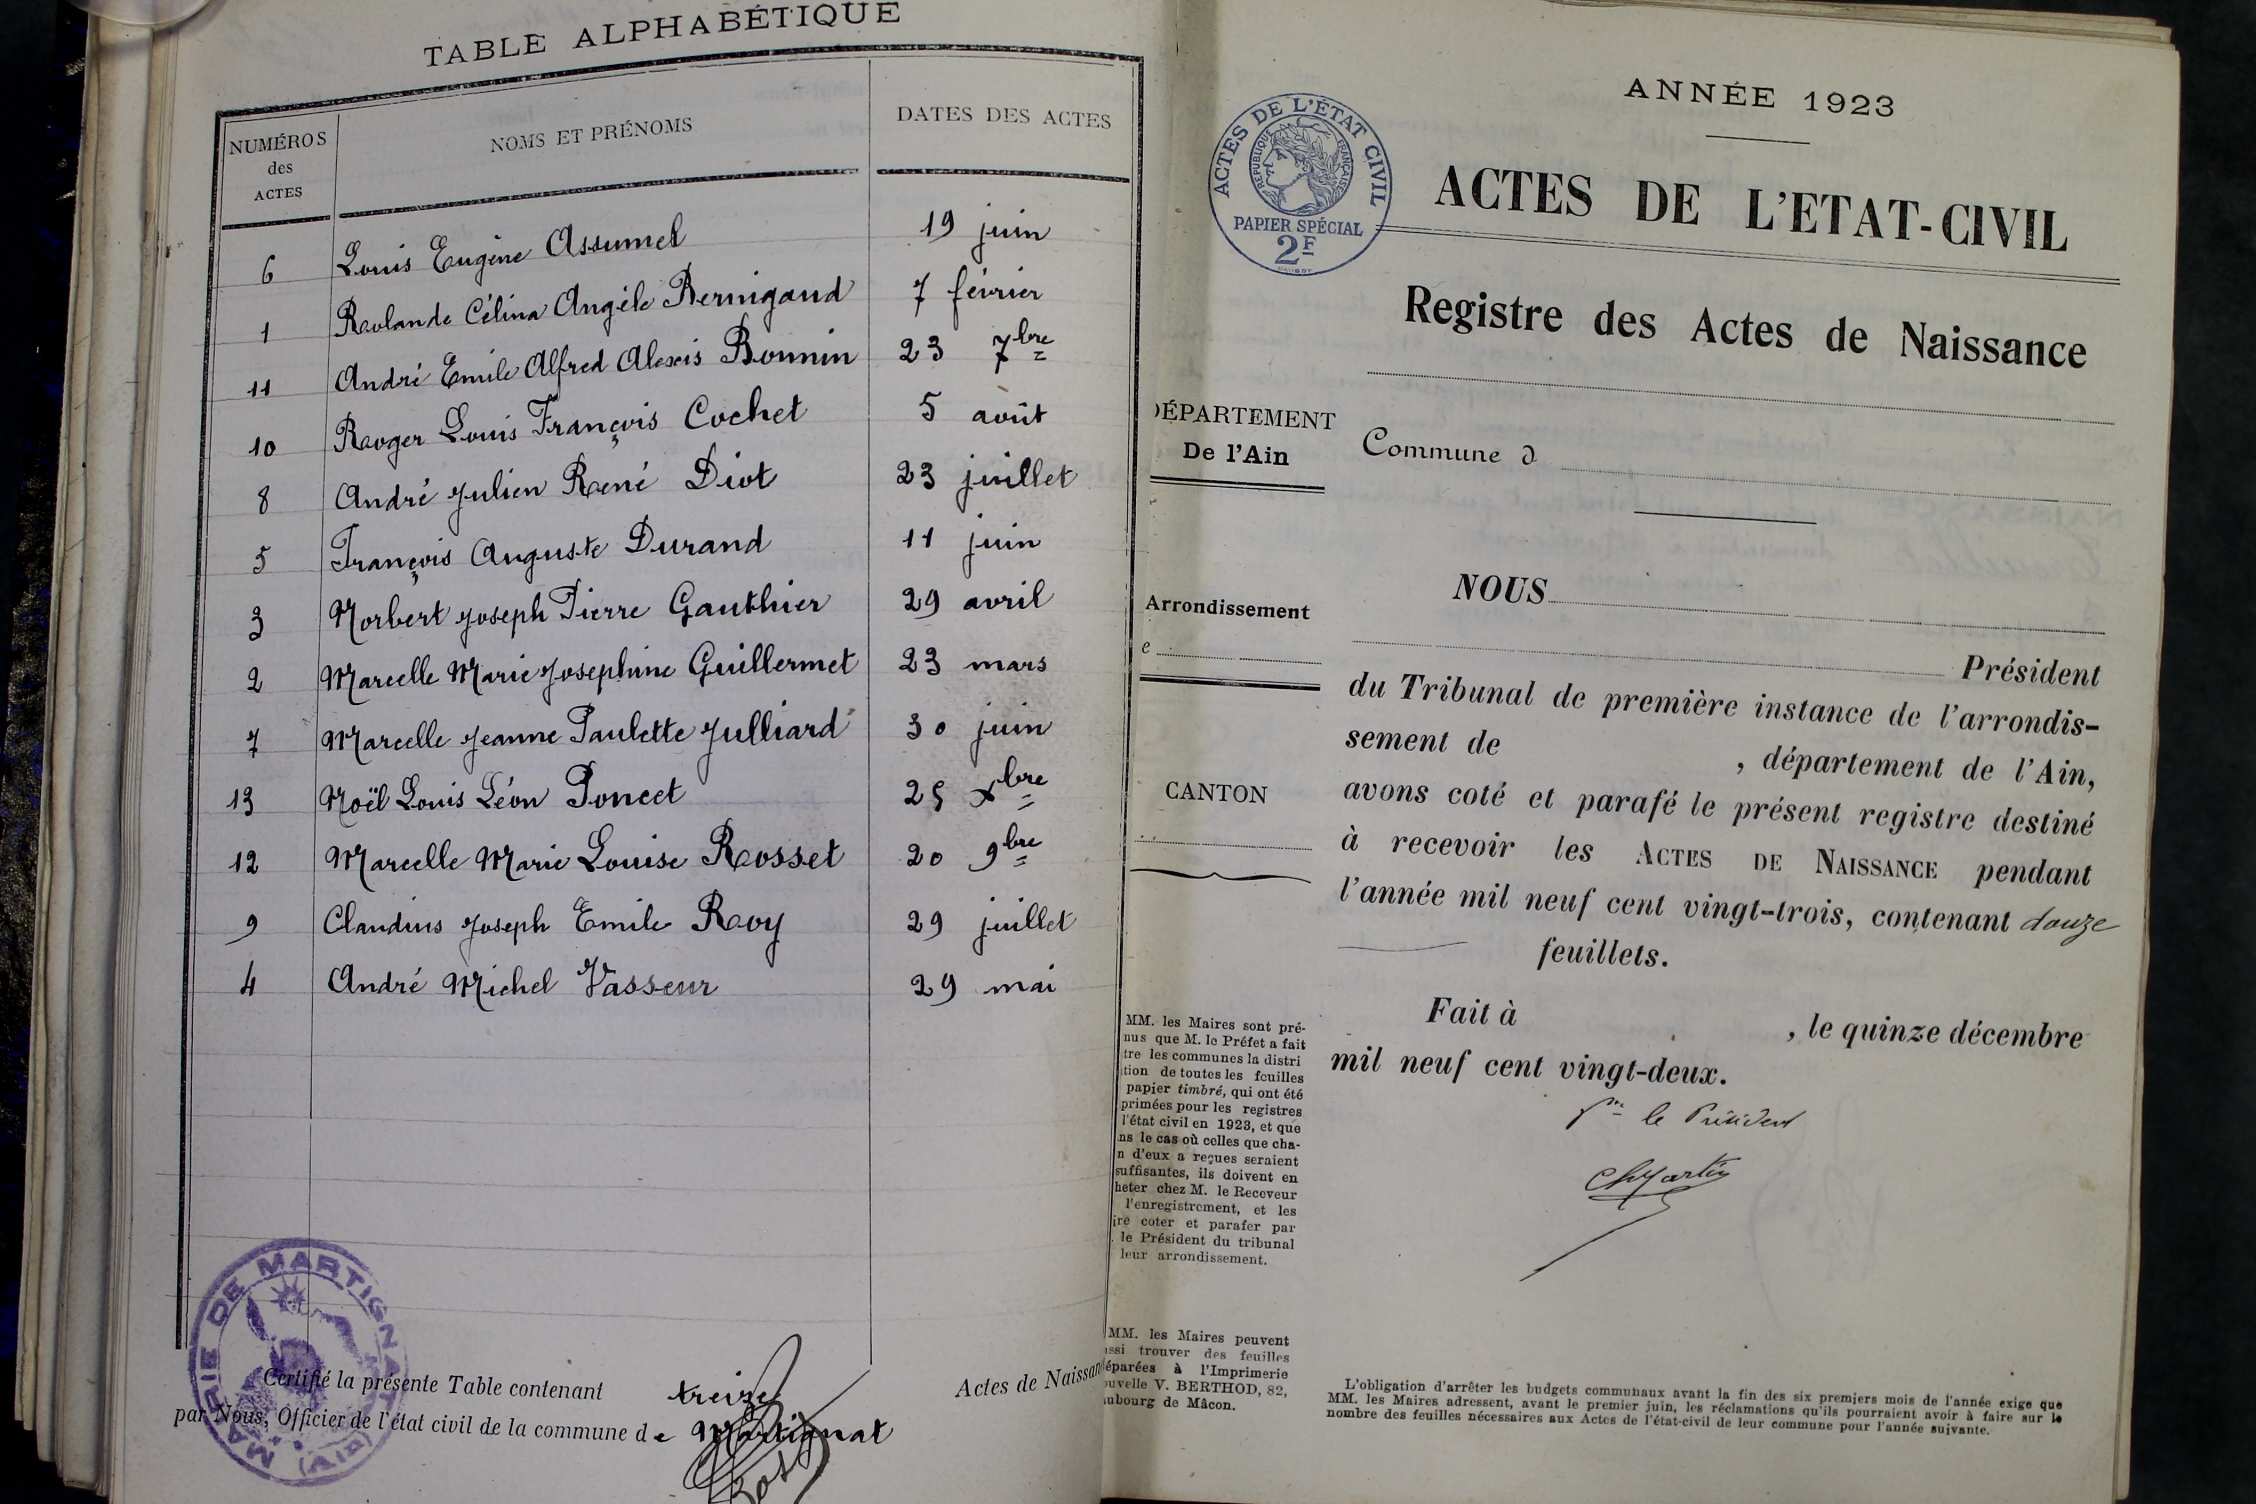 TABLE ALPHABÉTIQUE
NUMÉROS des ACTES NOMS ET PRÉNOMS DATES DES ACTES
6 Louis Eugène Assumel 19 juin
1 Rolande Célina Angèle Bernigaud 7 février
11 André Emile Alfred Alexis Bonnin 23 7bre
10 Roger Louis François Cochet 5 août
8 André Julien René Diot 23 juillet
5 François Auguste Durand 11 juin
3 Norbert Joseph Pierre Gauthier 29 avril
2 Marcelle Marie Josephine Guillermet 23 mars
7 Marcelle Jeanne Paulette Julliard 30 juin
13 Noël Louis Léon Poncet 25 Xbre
12 Marcelle Marie Louise Rosset 20 9bre
9 Claudius Joseph Emile Roy 29 juillet
4 André Michel Vasseur 29 mai
MAIRIE DE MARTIGNAT (AIN)
Certifié la présente Table contenant treize Actes de Naissan
par Nous, Officier de l'état civil de la commune de Martignat
ANNÉE 1923
ACTES DE L'ÉTAT CIVIL
RÉPUBLIQUE FRANÇAISE
PAPIER SPÉCIAL
2F
ACTES DE L'ETAT-CIVIL
Registre des Actes de Naissance
DÉPARTEMENT
De l'Ain
Commune d
NOUS
Arrondissement
e
Président
du Tribunal de première instance de l'arrondis-
sement de , département de l'Ain,
CANTON
avons coté et parafé le présent registre destiné
à recevoir les ACTES DE NAISSANCE pendant
l'année mil neuf cent vingt-trois, contenant douze
feuillets.
Fait à , le quinze décembre
mil neuf cent vingt-deux.
Pr le Président
ChMartin
MM. les Maires sont pré-
nus que M. le Préfet a fait
tre les communes la distri
tion de toutes les feuilles
papier timbré, qui ont été
primées pour les registres
l'état civil en 1923, et que
ns le cas où celles que cha-
n d'eux a reçues seraient
suffisantes, ils doivent en
heter chez M. le Receveur
l'enregistrement, et les
ire coter et parafer par
le Président du tribunal
leur arrondissement.
MM. les Maires peuvent
ussi trouver des feuilles
éparées à l'Imprimerie
ouvelle V. BERTHOD, 82,
ubourg de Mâcon.
L'obligation d'arrêter les budgets communaux avant la fin des six premiers mois de l'année exige que
MM. les Maires adressent, avant le premier juin, les réclamations qu'ils pourraient avoir à faire sur le
nombre des feuilles nécessaires aux Actes de l'état-civil de leur commune pour l'année suivante.